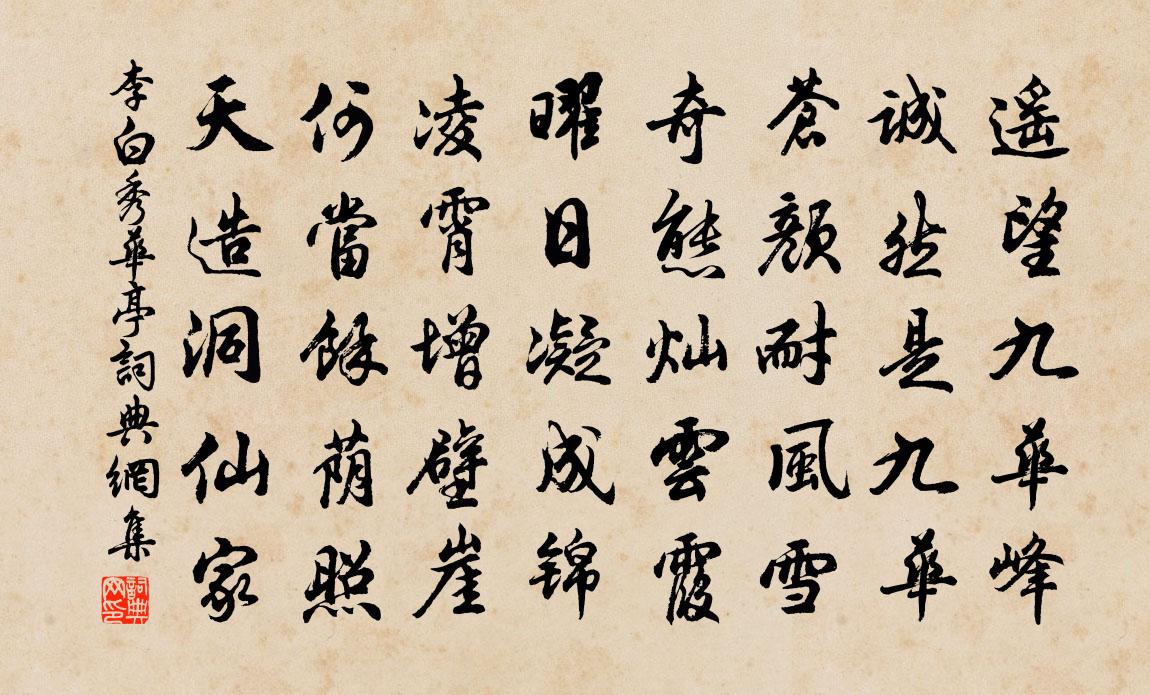 遥望九華峰
誠然是九華
蒼顏耐風雪
奇態灿雲霞
曜日凝成錦
凌霄增壁崖
何當餘荫照
天造洞仙家
李白秀華亭詞典網集
詞典网印